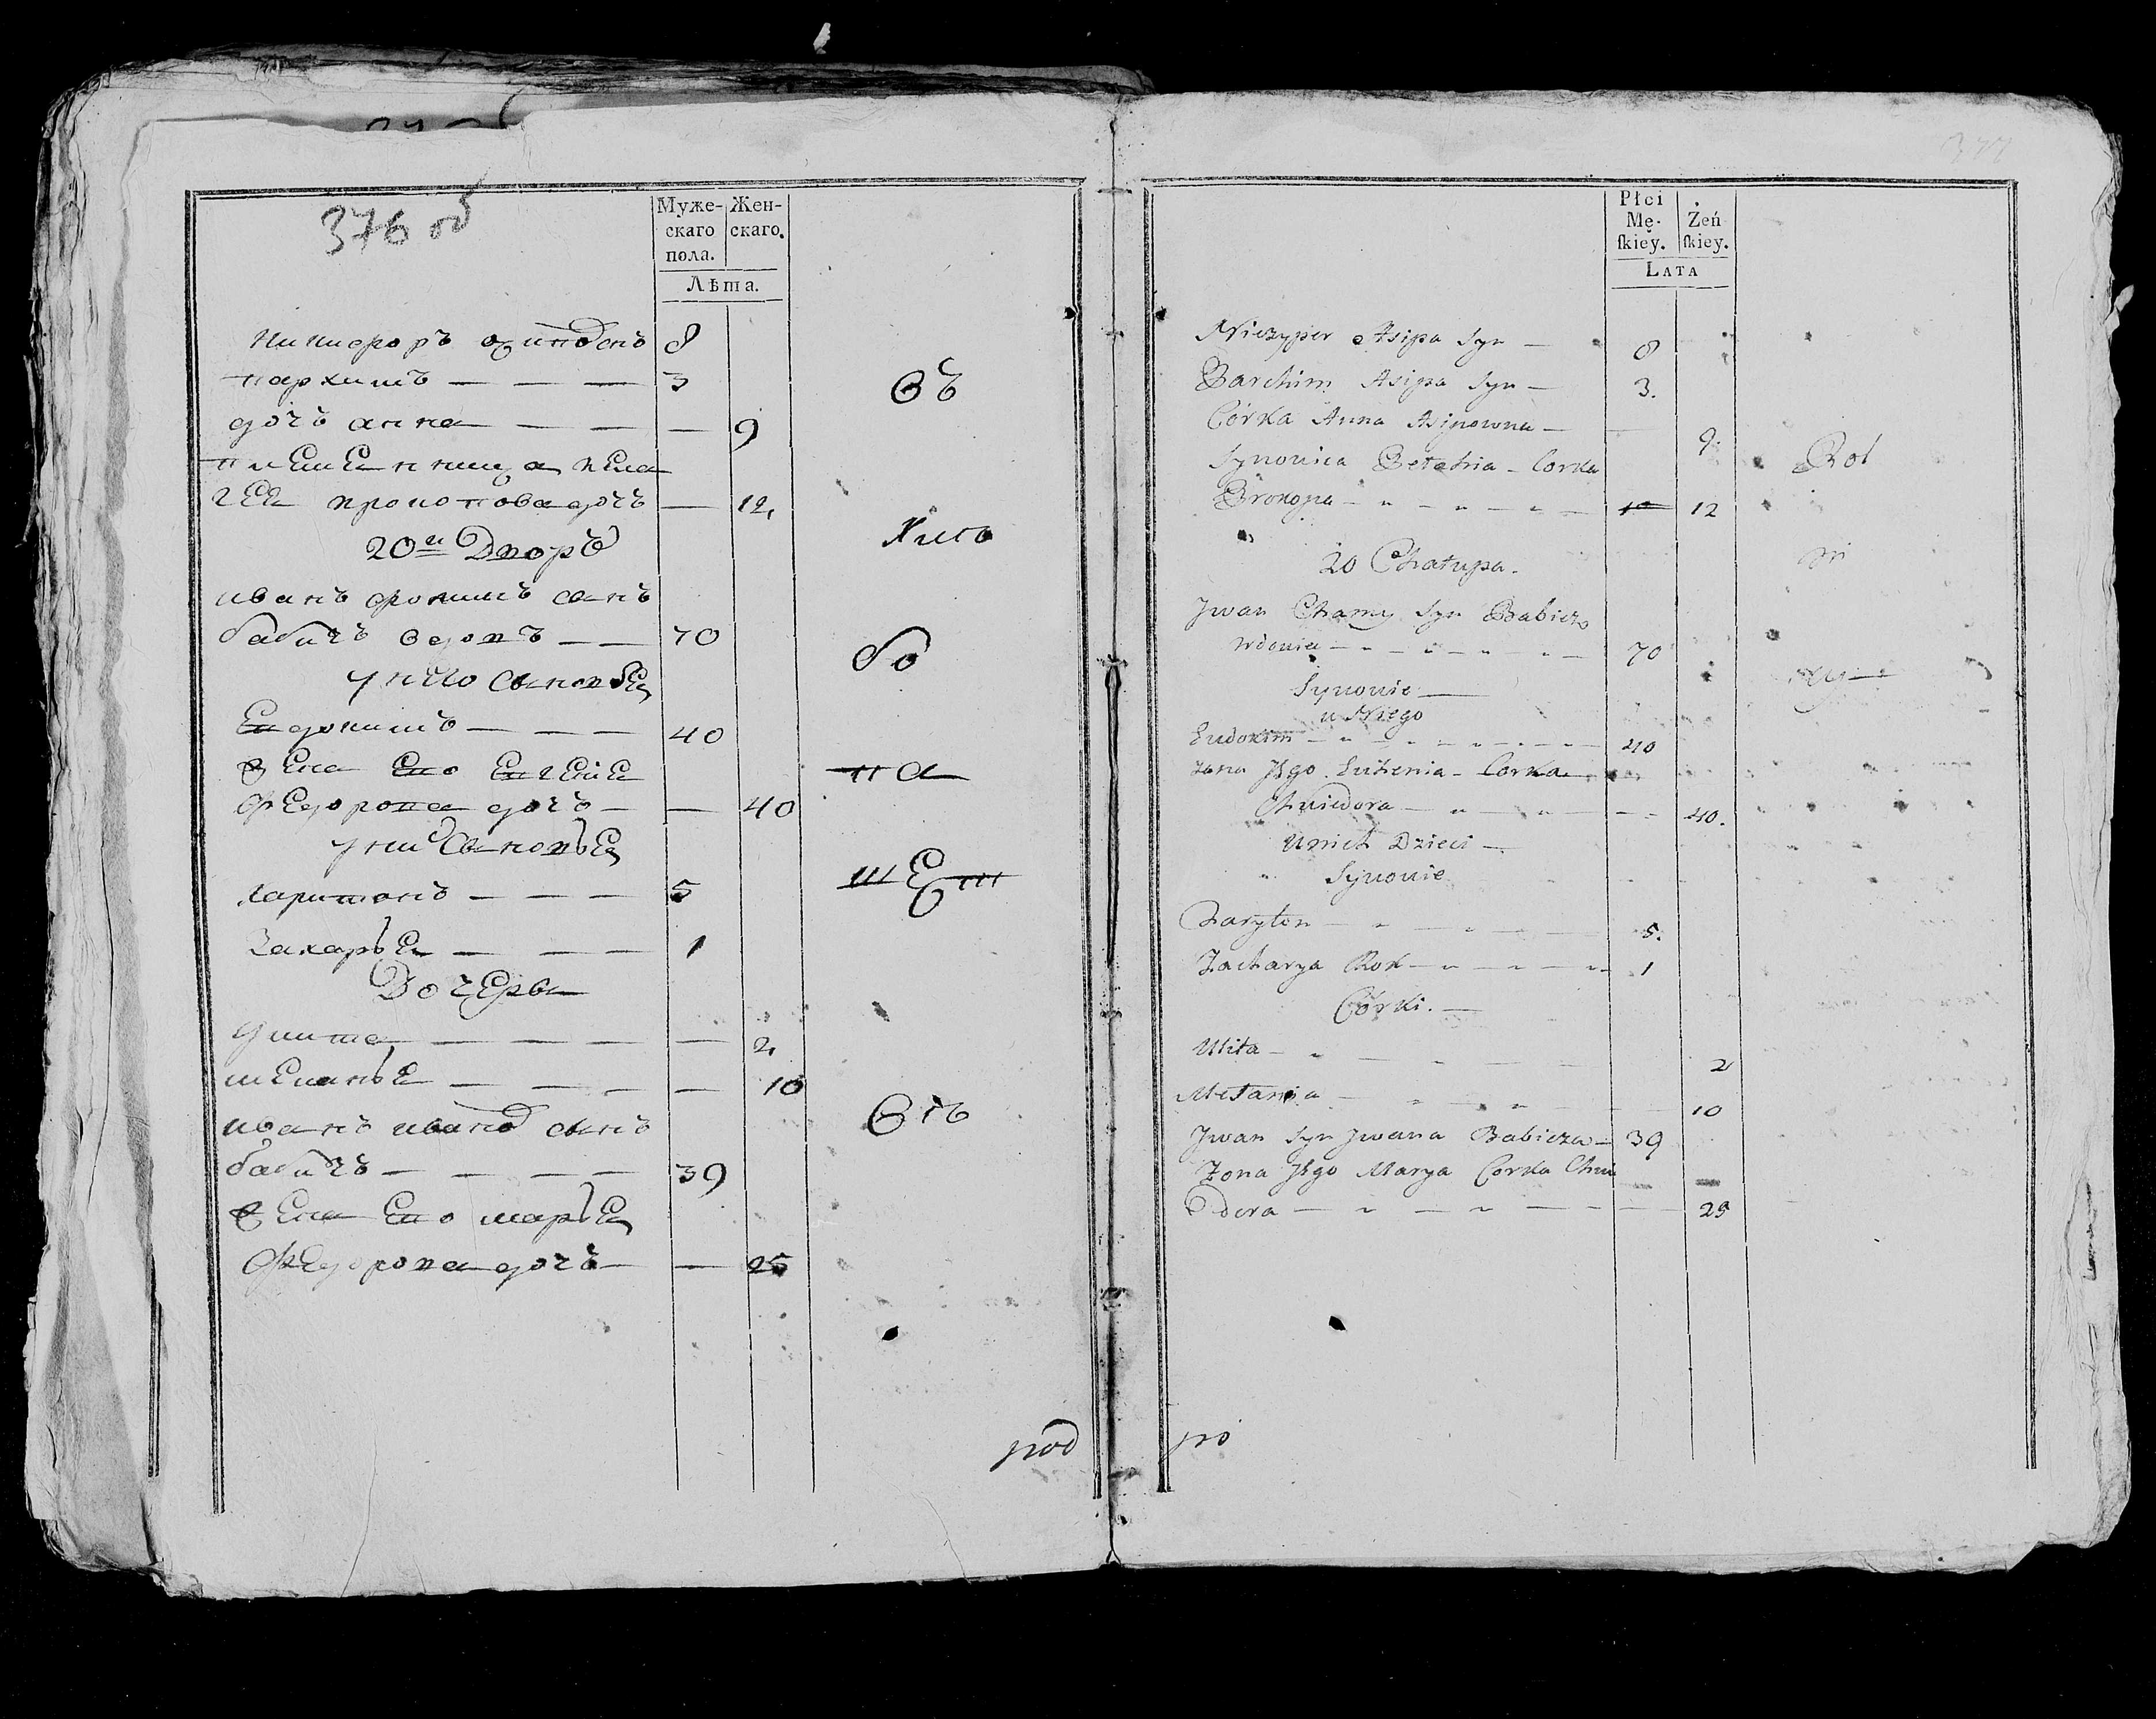 376 об
Муже-
скаго
пола.
Жен-
скаго.
Лѣта.
Никифоръ осиповъ 8
пархимъ — — — 3
дочъ анна — — — 9
племенница пела
геа прокопова дочъ — 12
20й Дворъ
иванъ фокинъ сынъ
бабичъ вдовъ — — 70
у него сыновья
Евдокимъ — — — 40
жена Его Евгенiя
федорова дочъ — — 40
у них сыновья
харитонъ — — — 5
Захарья — — — 1
Дочерьи
улита — — — — 2
меланья — — — — 10
иванъ ивановъ сынъ
бабичъ — — — 39
жена Его марья
федорова дочъ — — 25
въ
бо
па
шеш
под
377
Płci
Mę-
skiey.
Żeń
skiey.
LATA
Niczyper Asipa Syn — 8
Barchim Asipa Syn — 3.
Córka Anna Asipowna — 9.
Synowica Corka
Brokopa — 12
20 Chałupa.
Jwan Chamy Syn Babicz
wdowiec — 70
Synowie —
u Niego
Eudokim — 40
żona Jego Euhenia - Corka
Chwiedora — 40.
U nich Dzieci —
Synowie
Charyton — 5.
Zacharya Rok — 1
Córki. —
Ulita — 2
Melania — 10
Jwan Syn Jwana Babicza — 39
Żona Jego Marya Corka Chw
Edora — 25
Rol
po